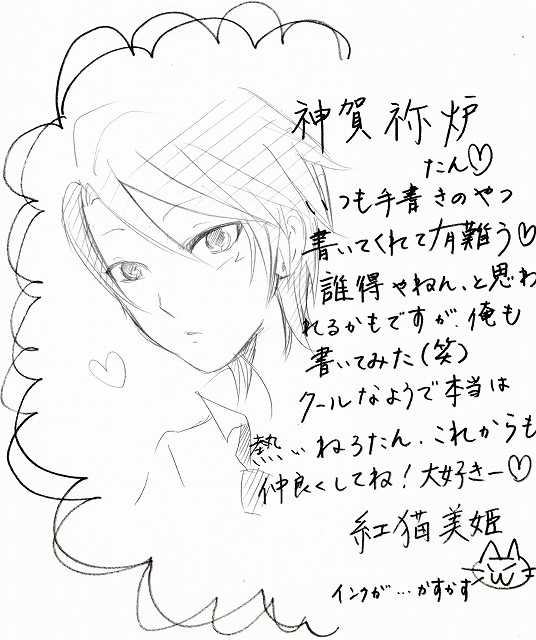 神賀祢炉
たん♡
いつも手書きのやつ
書いてくれて有難う♡
誰得やねん、と思わ
れるかもですが、俺も
書いてみた(笑)
クールなようで本当は
熱いねろたん、これからも
仲良くしてね!大好きー♡
紅猫美姫
インクが…かすかす